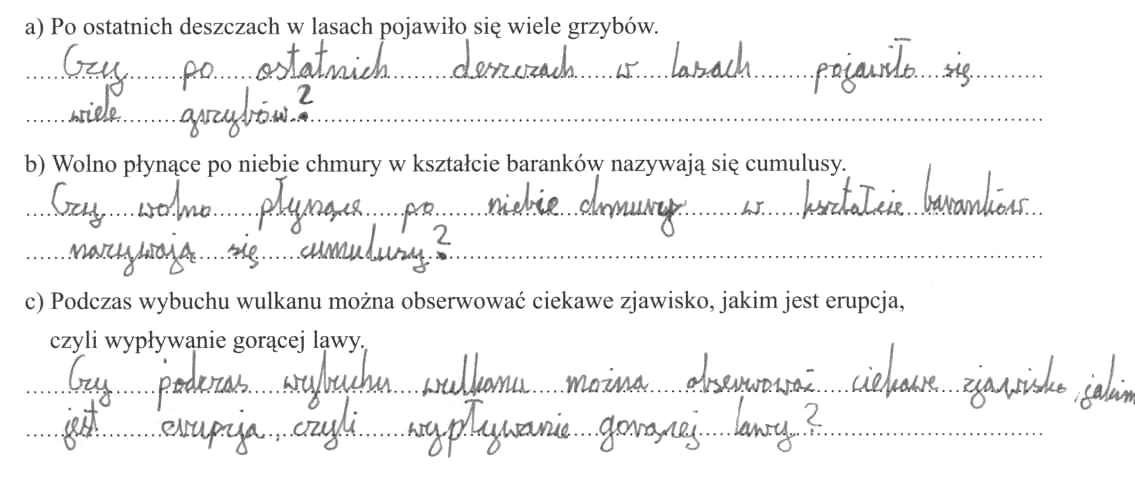 a) Po ostatnich deszczach w lasach pojawiło się wiele grzybów.
Czy po ostatnich deszczach w lasach pojawiło się
wiele grzybów?
b) Wolno płynące po niebie chmury w kształcie baranków nazywają się cumulusy.
Czy wolno płynące po niebie chmury w kształcie baranków
nazywają się cumulusy?
c) Podczas wybuchu wulkanu można obserwować ciekawe zjawisko, jakim jest erupcja,
czyli wypływanie gorącej lawy.
Czy podczas wybuchu wulkanu można obserwować ciekawe zjawisko, jakim
jest erupcja, czyli wypływanie gorącej lawy?